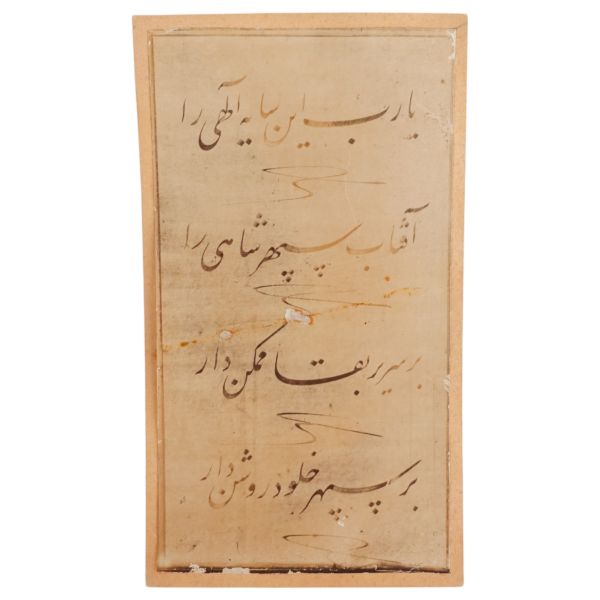 یارب این سایه الهی را
آفتاب سپهر شاهی را
بر سریر بقا ممکن دار
بر سپهر خلود روشن دار